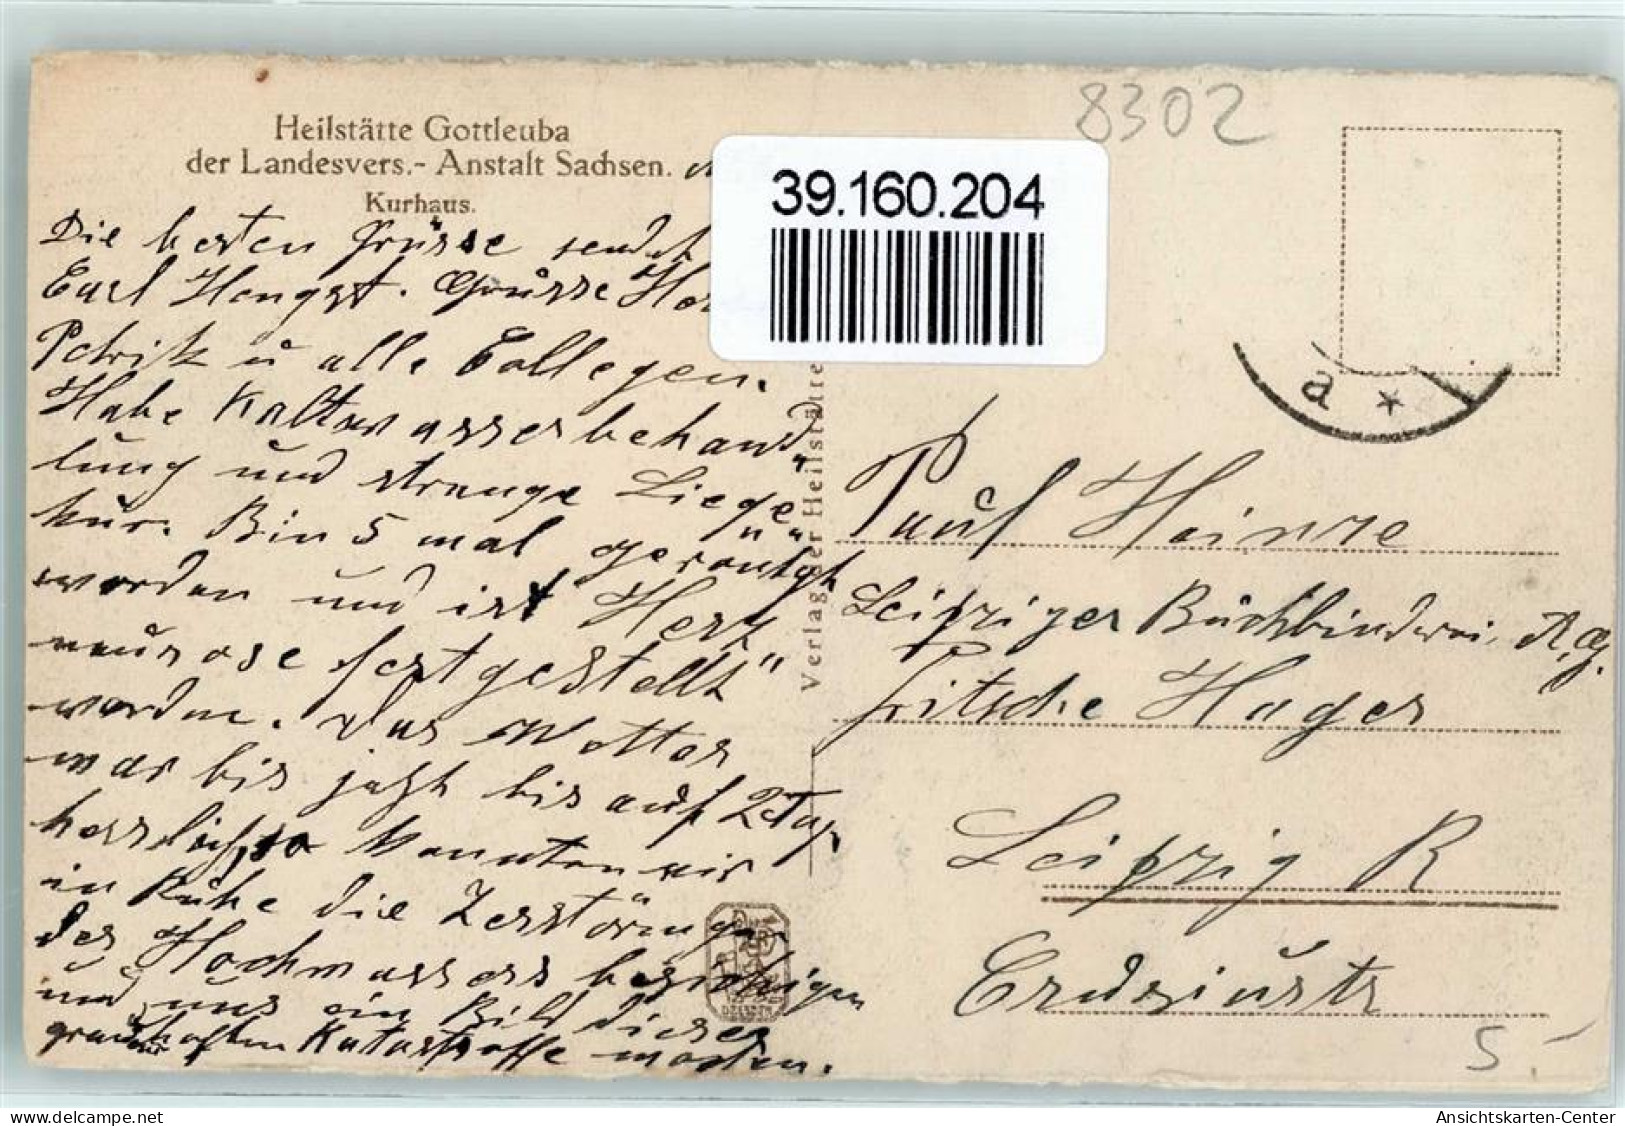 Heilstätte Gottleuba
der Landesvers.- Anstalt Sachsen.
Kurhaus.
Die besten Grüsse sendet
Curl Hengst. Grüsse
u alle Collegen.
Habe Kaltwasserbehand„
lung und strenge Liege
kur. Bin 5 mal geröntgt
worden und ist Herz
neurose festgestellt"
worden. Das Wetter
war bis jetzt bis auf 2 Tage
herrlich, so konnten wir
in Ruhe die Zerstörungen
des Hochwassers besichtigen
und uns ein Bild dieser
grauenhaften Katastroffe machen.
8302
39.160.204
Verlag der Heilstätte
a *
Paul Heinze
Leipziger Buchbinderei. A.G.
Fritsche Hager
Leipzig R
Crusiusstr
5
delcampe.net
Ansichtskarten-Center